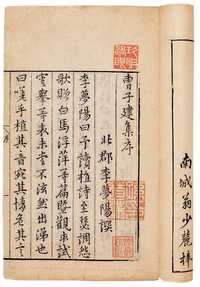 南城翁少麓梓
曹子建集序
北郡李夢陽譔
李夢陽曰予讀植詩至瑟調怨
歌贈白馬浮萍等篇暨觀求試
審舉等表未嘗不泫然出涕也
曰嗟乎植其音宛其情危其
序